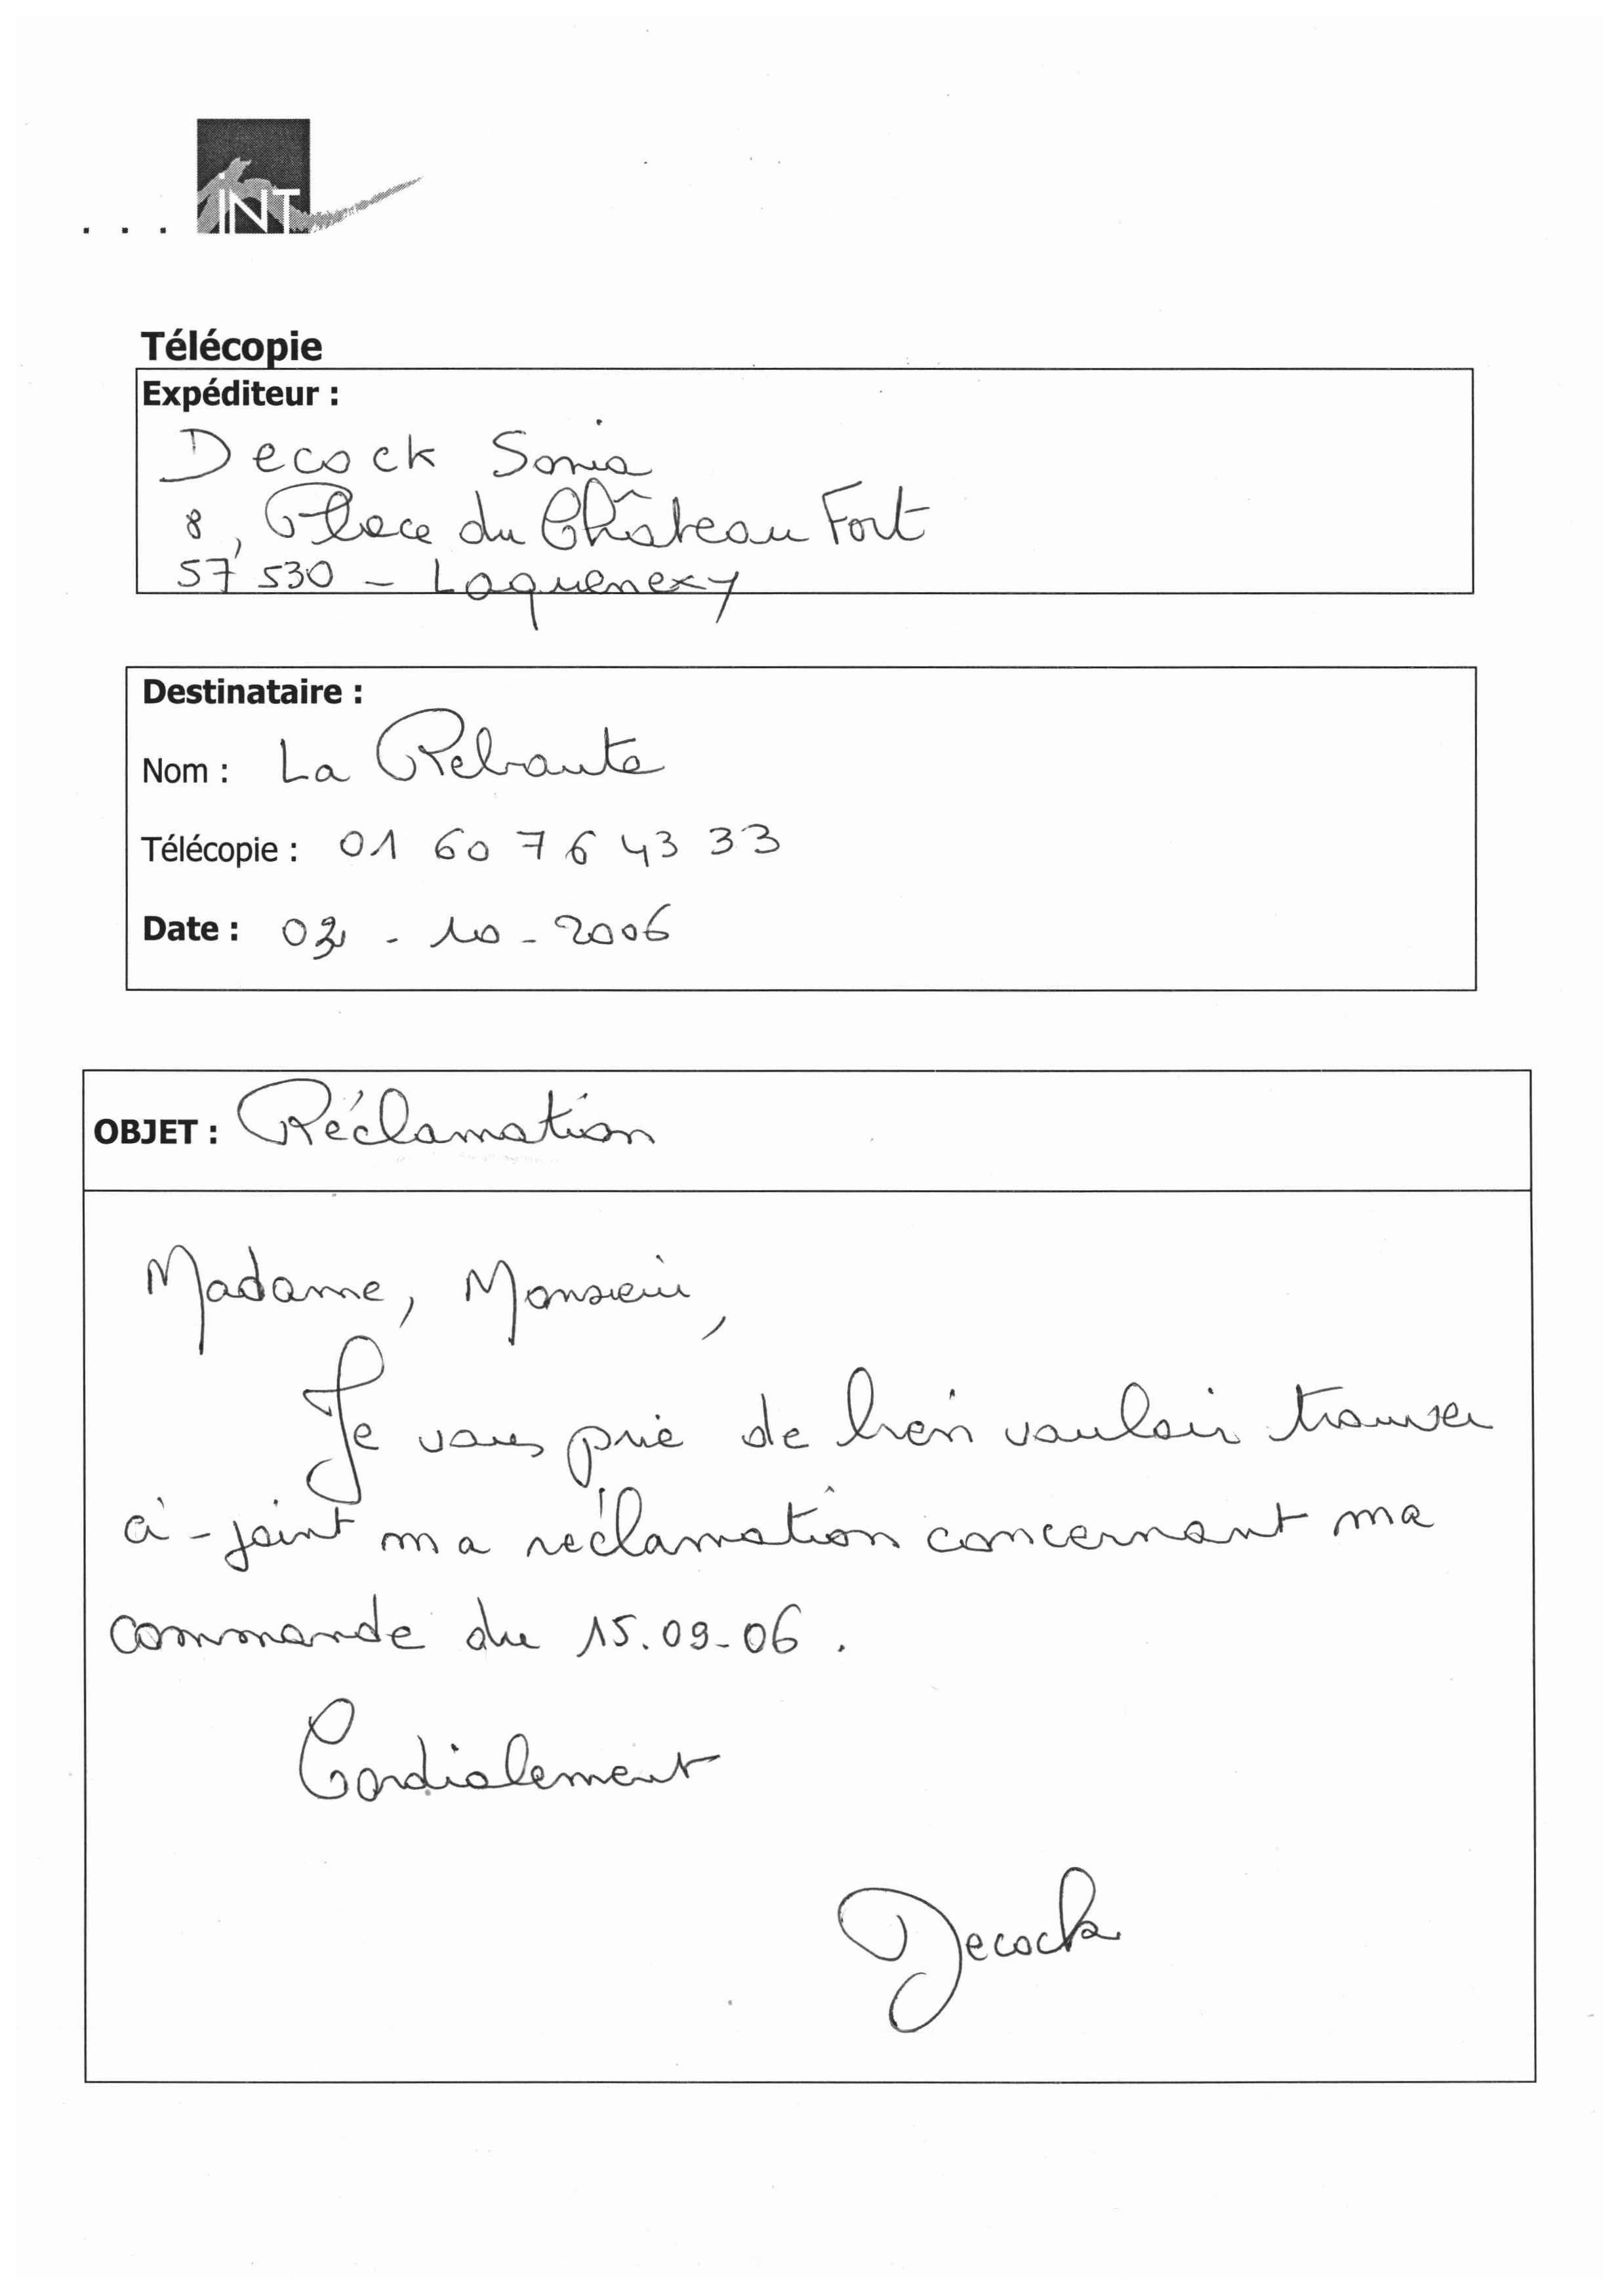 ... INT
Télécopie
Expéditeur :
Decock Sonia
8, Place du Château Fort
57 530 - Laquenexy
Destinataire :
Nom : La Rebraute
Télécopie : 01 60 76 43 33
Date : - 10 - 2006
OBJET : Réclamation
Madame, Monsieur,
Je vous prie de bien vouloir trouver
ci-joint ma réclamation concernant ma
commande du 15.09-06.
Cordialement
Decock